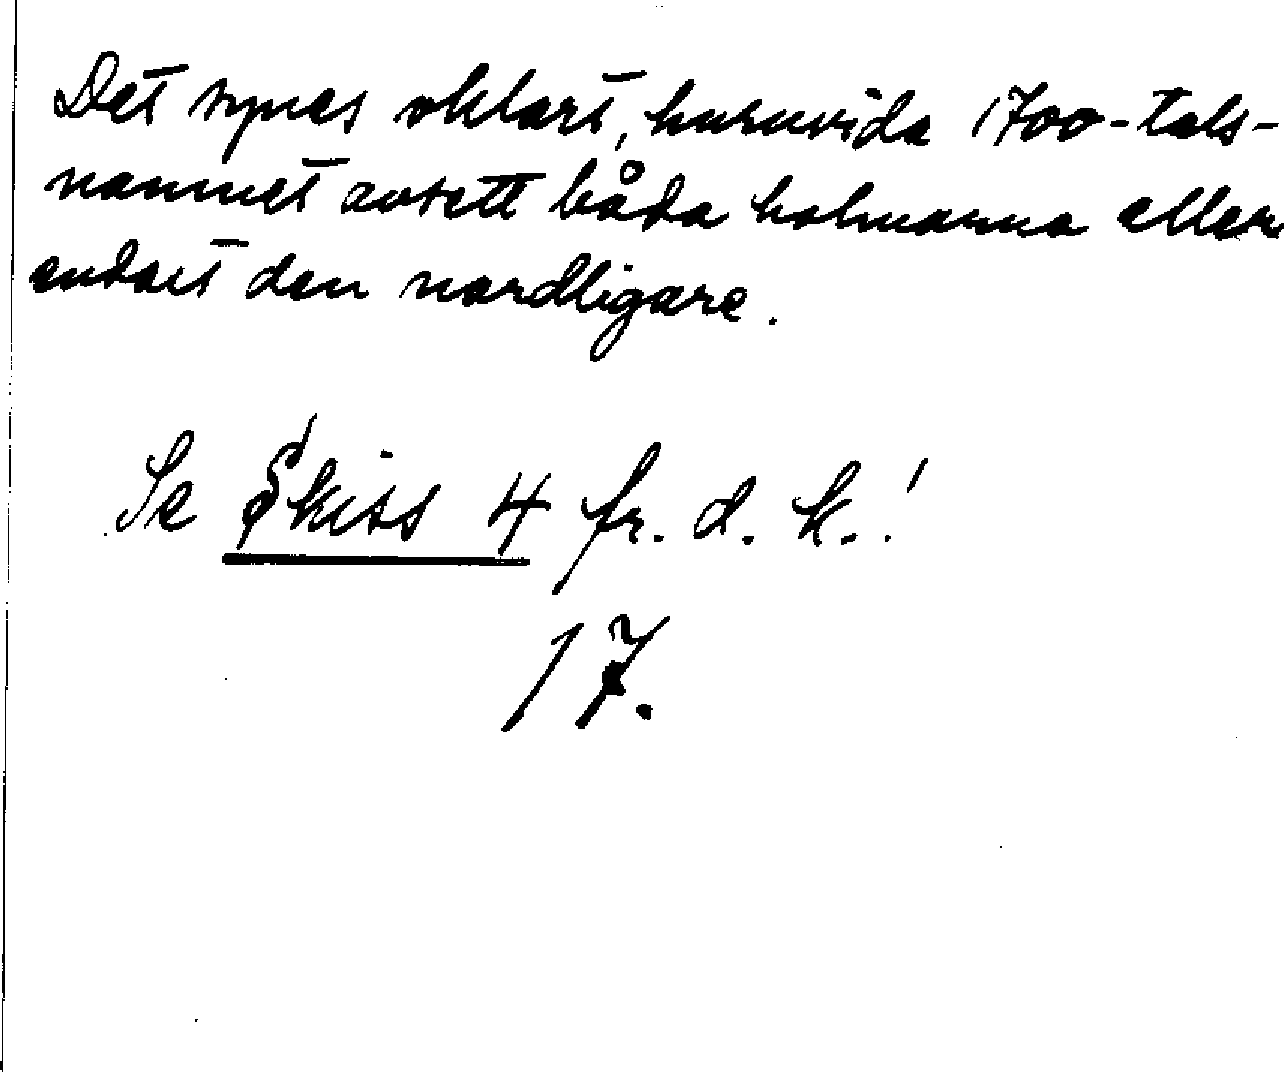 Det synes oklart, huruvida 1700-tals-
namnet avsett båda holmarna eller
endast den nordligare.
Se Skiss 4 fr. d. k.!
17.